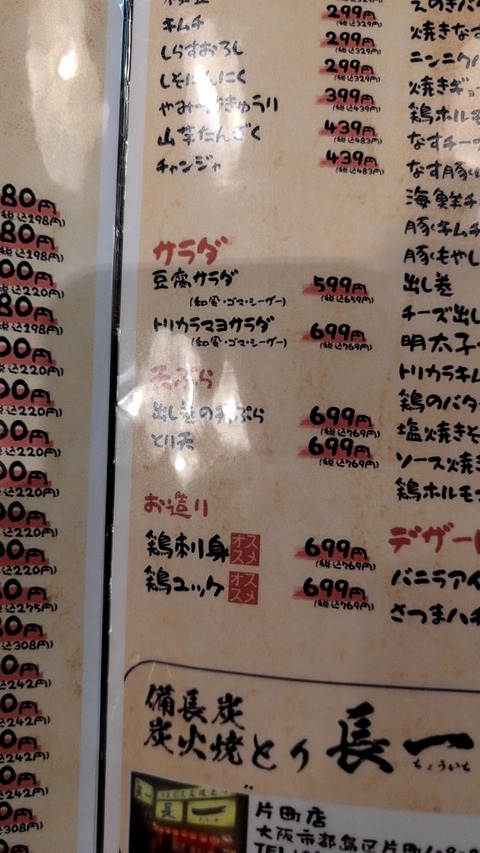 80円
(税込198円)
80円
(税込198円)
00円
(税込220円)
80円
(税込198円)
00円
込220円)
00円
込220円)
00円
込220円)
00円
込220円)
00円
込220円)
00円
込220円)
込275円)
80円
込308円)
0円
込242円)
0円
込242円)
0円
込242円)
0円
込242円)
0円
308円)
299円
(税込329円)
キムチ 299円
(税込329円)
しらすおろし 299円
(税込329円)
しそにんにく 399円
(税込439円)
やみつききゅうり 439円
(税込483円)
山芋たんざく 439円
(税込483円)
チャンジャ
サラダ
豆腐サラダ 599円
(和風・ゴマ・シーザー) (税込659円)
トリカラマヨサラダ 699円
(和風・ゴマ・シーザー) (税込769円)
天ぷら
出し巻の天ぷら 699円
(税込769円)
とり天 699円
(税込769円)
お造り
鶏刺り身 オススメ 699円
(税込769円)
鶏ユッケ オススメ 699円
(税込769円)
焼きなす
ニンニク
焼きギョ
鶏ホルモ
なすチー
なす豚
海鮮チ
豚キムチ
豚もやし
出し巻
チーズ出し
明太子
トリカラキム
鶏のバタ
塩焼きそ
ソース焼き
鶏ホルモ
デザー
バニラアイ
さつまハチ
備長炭
炭火焼とり 長一
ちょういち
長一
片町店
大阪市都島区片町